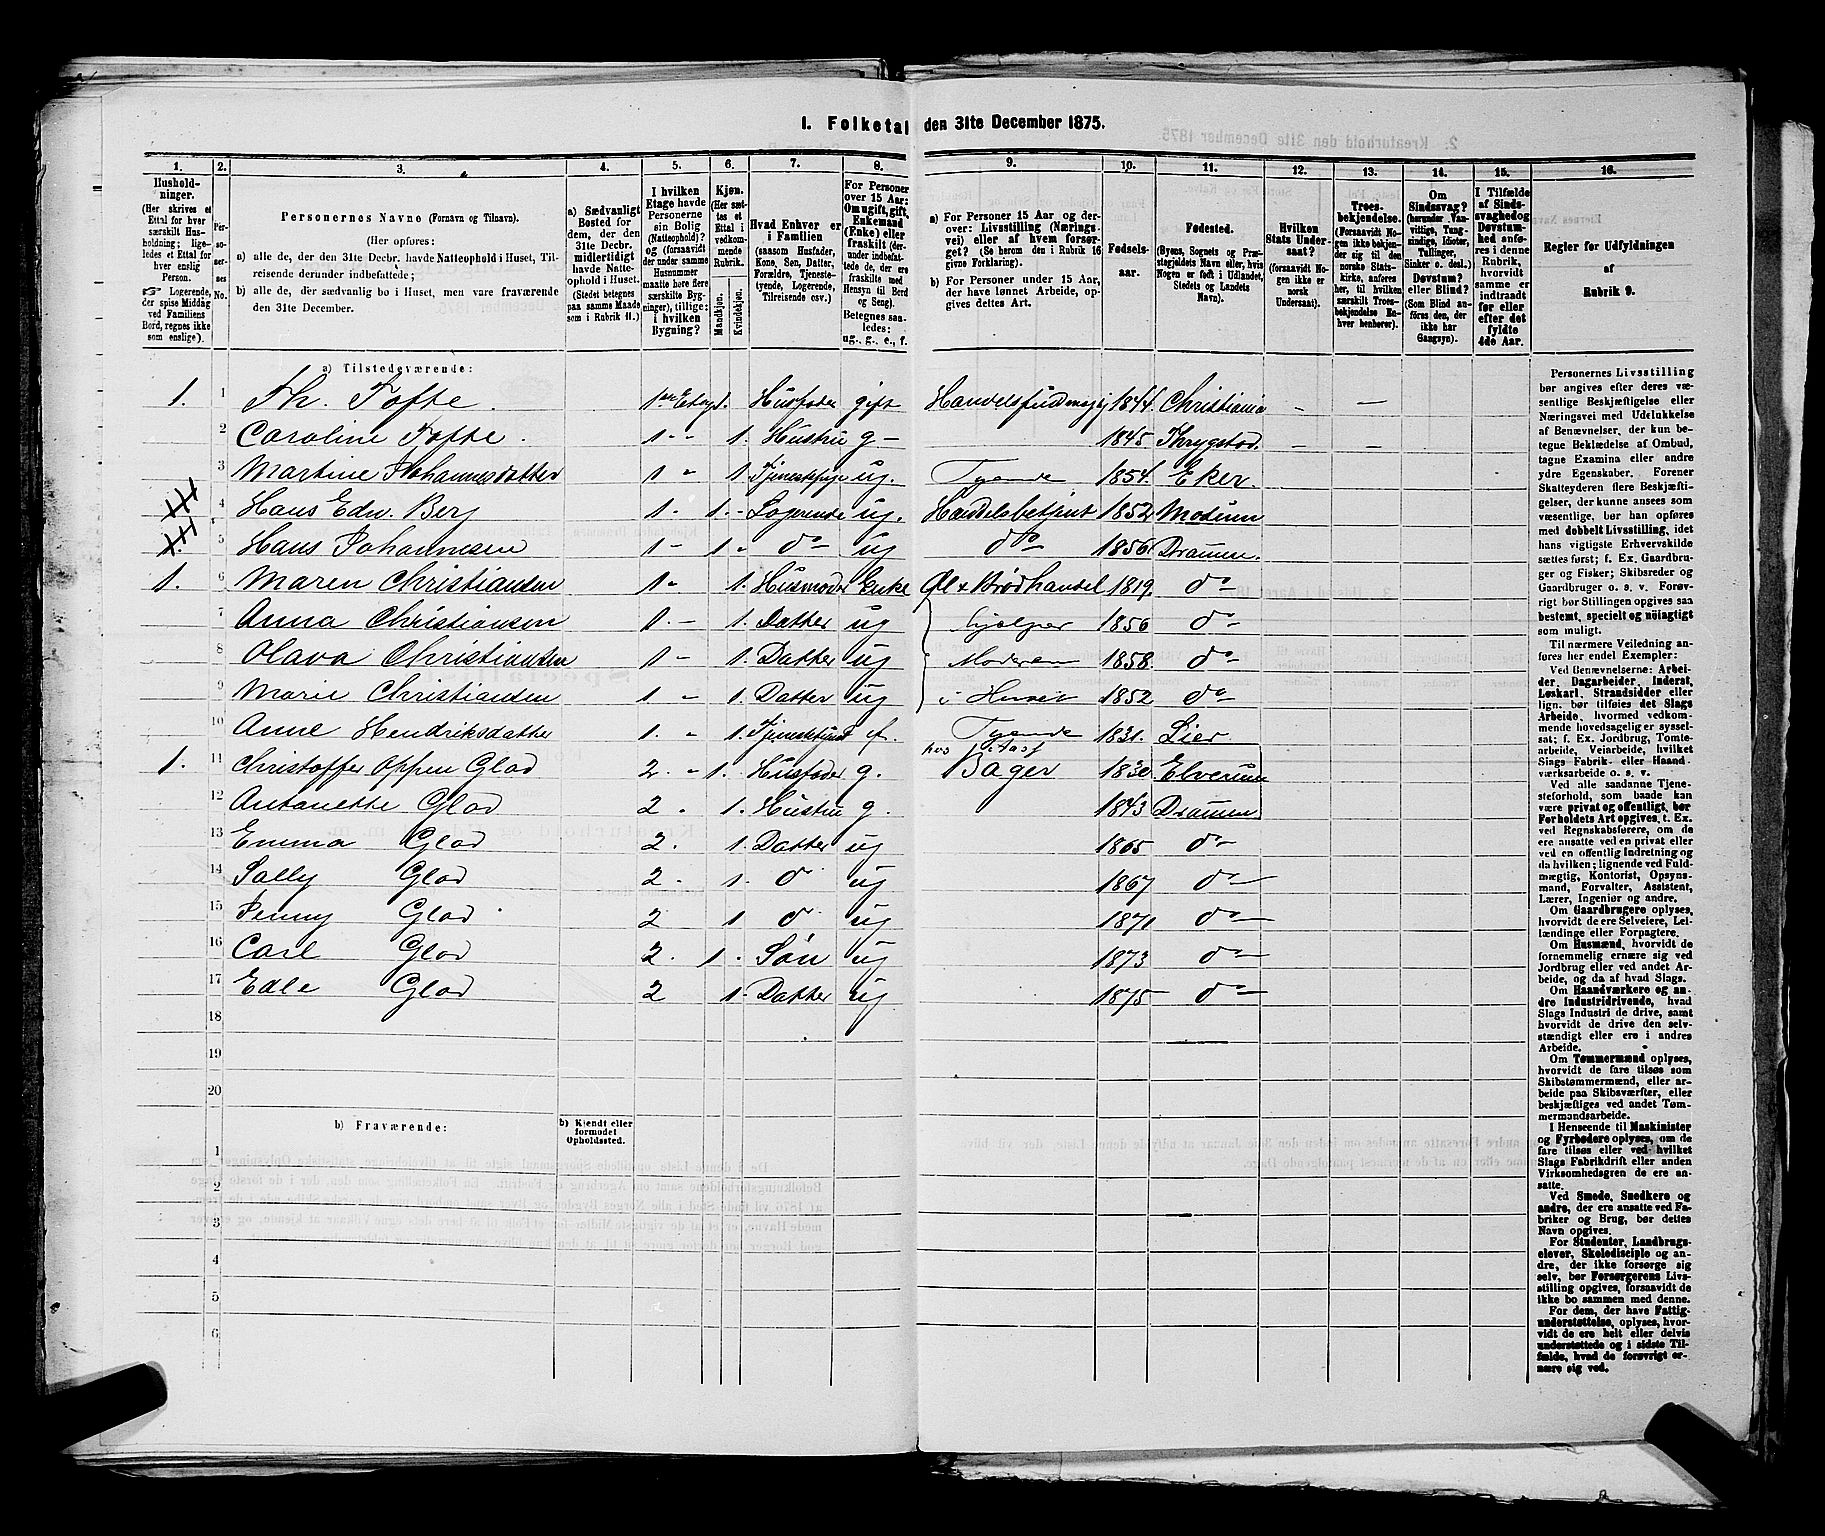 1. Folketal den 31te December 1875.
1. 2. 3. 4. 5. 6. 7. 8. 9. 10. 11. 12. 13. 14. 15. 16.
Husholdninger. (Her skrives et Ettal for hver særskilt Husholdning; ligeledes et Ettal for hver enslig Person. Logerende, der spise Middag ved Familiens Bord, regnes ikke som enslige).
Personernes No.
Personernes Navne (Fornavn og Tilnavn).
(Her opføres:
a) alle de, der den 31te Decbr. havde Natteophold i Huset, Tilreisende derunder indbefattede;
b) alle de, der sædvanlig bo i Huset, men vare fraværende den 31te December.
a) Sædvanligt Bosted for dem, der den 31te Decbr. midlertidigt havde Natteophold i Huset. (Stedet betegnes paa samme Maade som i Rubrik 11.)
I hvilken Etage havde Personerne sin Bolig (Natteophold)? og (forsaavidt der under samme Husnummer maatte høre flere særskilte Bygninger), tillige: i hvilken Bygning?
Kjøn. (Her sættes et Ettal i vedkommende Rubrik. Mandkjøn. Kvindekjøn.
Hvad Enhver er i Familien (saasom Husfader, Kone, Søn, Datter, Forældre, Tjenestetyende, Logerende, Tilreisende osv.)
For Personer over 15 Aar: Om ugift, gift, Enkemand (Enke) eller fraskilt (derunder indbefattede de, der ere fraskilte med Hensyn til Bord og Seng). Betegnes saaledes: ug., g., e., f.
a) For Personer 15 Aar og derover: Livsstilling (Næringsvei) eller af hvem forsørget? (Se herom den i Rubrik 16 givne Forklaring).
b) For Personer under 15 Aar, der have lønnet Arbeide, opgives dettes Art.
Fødselsaar.
Fødested. (Byens, Sognets og Præstegjeldets Navn eller, hvis Nogen er født i Udlandet, Stedets og Landets Navn).
Hvilken Stats Undersaat? (forsaavidt Nogen ikke er norsk Undersaat).
Troesbekjendelse. (Forsaavidt Nogen ikke bekjender sig til den norske Statskirke, anføres her, til hvilken særskilt Troesbekjendelse Enhver henhører).
Om Sindssvag? (herunder Vanvittige, Tungsindige, Idioter, Tullinger, Sinker o. desl.) Døvstum? eller Blind? (Som Blind anføres den, der ikke har Gangsyn).
I Tilfælde af Sindssvaghed og Døvstumhed anføres i denne Rubrik, hvorvidt samme er indtraadt før eller efter det fyldte 4de Aar.
Regler for Udfyldningen af Rubrik 9.
a) Tilstedeværende:
1. 1 Th. Tofte. 1ste Etage 1. Husfader gift Handelsfuldmægtig 1844. Christiania – –
2 Caroline Tofte. 1 - - 1. Hustru g – 1845 Thrygstad. – –
3 Martine Johannesdatter 1 - 1. Tjenestepige ug. Tyende 1854. Eker.
4 Hans Edw. Berg 1 - 1. - Logerende ug. Handelsbetjent 1852 Modum
5 Hans Johannesen 1 - 1 - do ug do 1856 Dramen.
1. 6 Maren Christiansen 1 - 1. Husmoder Enke Øl & Brødhandel 1819. do
7 Anna Christiansen 1. - 1. Datter ug hjælper 1856 do
8 Olava Christiansen 1 - 1. Datter ug Moderen 1858. do
9 Marie Christiansen 1 - 1. Datter ug i Huset 1852 do
10 Anne Hendriksdatter 1. - 1. f. Tyende 1831. Lier
1. 11 Christoffer Oppen Glad 2. - 1. Husfader g. hos Bager 1830 Elverum
12 Antonette Glad 2. 1. Hustru g. 1843 Dramen
13 Emma Glad 2. 1. Datter ug 1865 do
14 Sally Glad 2. 1. d ug 1867 do
15 Jenny Glad 2 1 d ug 1871 do
16 Carl Glad 2. 1. Søn ug 1873 do
17 Edle Glad 2 1. Datter ug 1875 do
18
19
20
b) Fraværende: b) Kjendt eller formodet Opholdssted.
1
2
3
4
5
6
Personernes Livsstilling
bør angives efter deres væsentlige
Beskjæftigelse eller
Næringsvei med Udelukkelse
af Benævnelser, der kun betegne
Beklædelse af Ombud,
tagne Examina eller andre
ydre Egenskaber. Forener
Skatteyderen flere Beskjæftigelser,
der kunne ansees som
væsentlige, bør han opføres
med dobbelt Livsstilling, idet
hans vigtigste Erhvervskilde
sættes først; f. Ex. Gaardbruger
og Fisker; Skibsreder og
Gaardbruger o. s. v. Forøvrigt
bør Stillingen opgives saa
bestemt, specielt og nøiagtigt
som muligt.
Til nærmere Veiledning anføres
her endel Exempler:
Ved Benævnelserne: Arbeider,
Dagarbeider, Inderst,
Løskarl, Strandsidder eller
lign. bør tilføies det Slags
Arbeide, hvormed vedkommende
hovedsagelig er sysselsat;
f. Ex. Jordbrug, Tomtearbeide,
Veiarbeide, hvilket
Slags Fabrik- eller Haandværksarbeide
o. s. v.
Ved alle saadanne Tjenesteforhold,
som baade kan
være privat og offentligt, bør
Forholdets Art opgives, t. Ex.
ved Regnskabsførere, om de
ere ansatte ved en privat eller
ved en offentlig Indretning og
da hvilken; lignende ved Fuldmægtig,
Kontorist, Opsynsmand,
Forvalter, Assistent,
Lærer, Ingeniør og andre.
Om Gaardbrugere oplyses,
hvorvidt de ere Selveiere, Leilændinge
eller Forpagtere.
Om Husmænd, hvorvidt de
fornemmelig ernære sig ved
Jordbrug eller ved andet Arbeide,
og da af hvad Slags.
Om Haandværkere og andre
Industridrivende, hvad
Slags Industri de drive, samt
hvorvidt de drive den selvstændigt
eller ere i andres
Arbeide.
Om Tømmermænd oplyses,
hvorvidt de fare tilsøs som
Skibstømmermænd, eller arbeide
paa Skibsværfter, eller
beskjæftiges ved andet Tømmermandsarbeide.
I Henseende til Maskinister
og Fyrbødere oplyses, om de
fare tilsøs eller ved hvilket
Slags Fabrikdrift eller anden
Virksomhedsgren de ere ansatte.
Ved Smede, Snedkere og
andre, der ere ansatte ved Fabriker
og Brug, bør dettes
Navn opgives.
For Studenter, Landbrugselever,
Skoledisciple og andre,
der ikke forsørge sig
selv, bør Forsørgerens Livsstilling
opgives, forsaavidt de
ikke bo sammen med denne.
For dem, der have Fattigunderstøttelse,
oplyses, hvorvidt
de ere helt eller delvis
understøttede og i sidste Tilfælde,
hvad de forøvrigt ernære
sig ved.